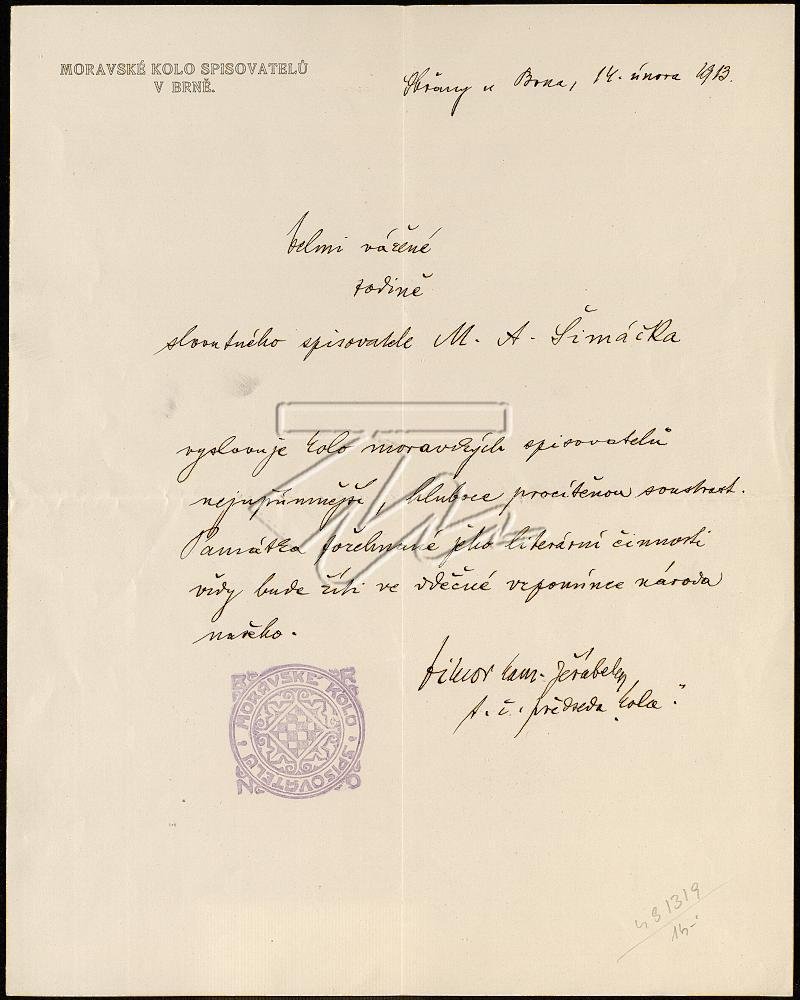 MORAVSKÉ KOLO SPISOVATELŮ
V BRNĚ.
Obřany u Brna, 14. února 1913.
Velmi vážené
rodině
slovutného spisovatele M. A. Šimáčka
vyslovuje Kolo moravských spisovatelů
nejupřímnější, hluboce procítěnou soustrast.
Památka jeho literární činnosti
vždy bude žíti ve vděčné vzpomínce národa
našeho.
Viktor Kam. Jeřábek,
t. č. předseda "Kola".
MORAVSKÉ KOLO SPISOVATELŮ